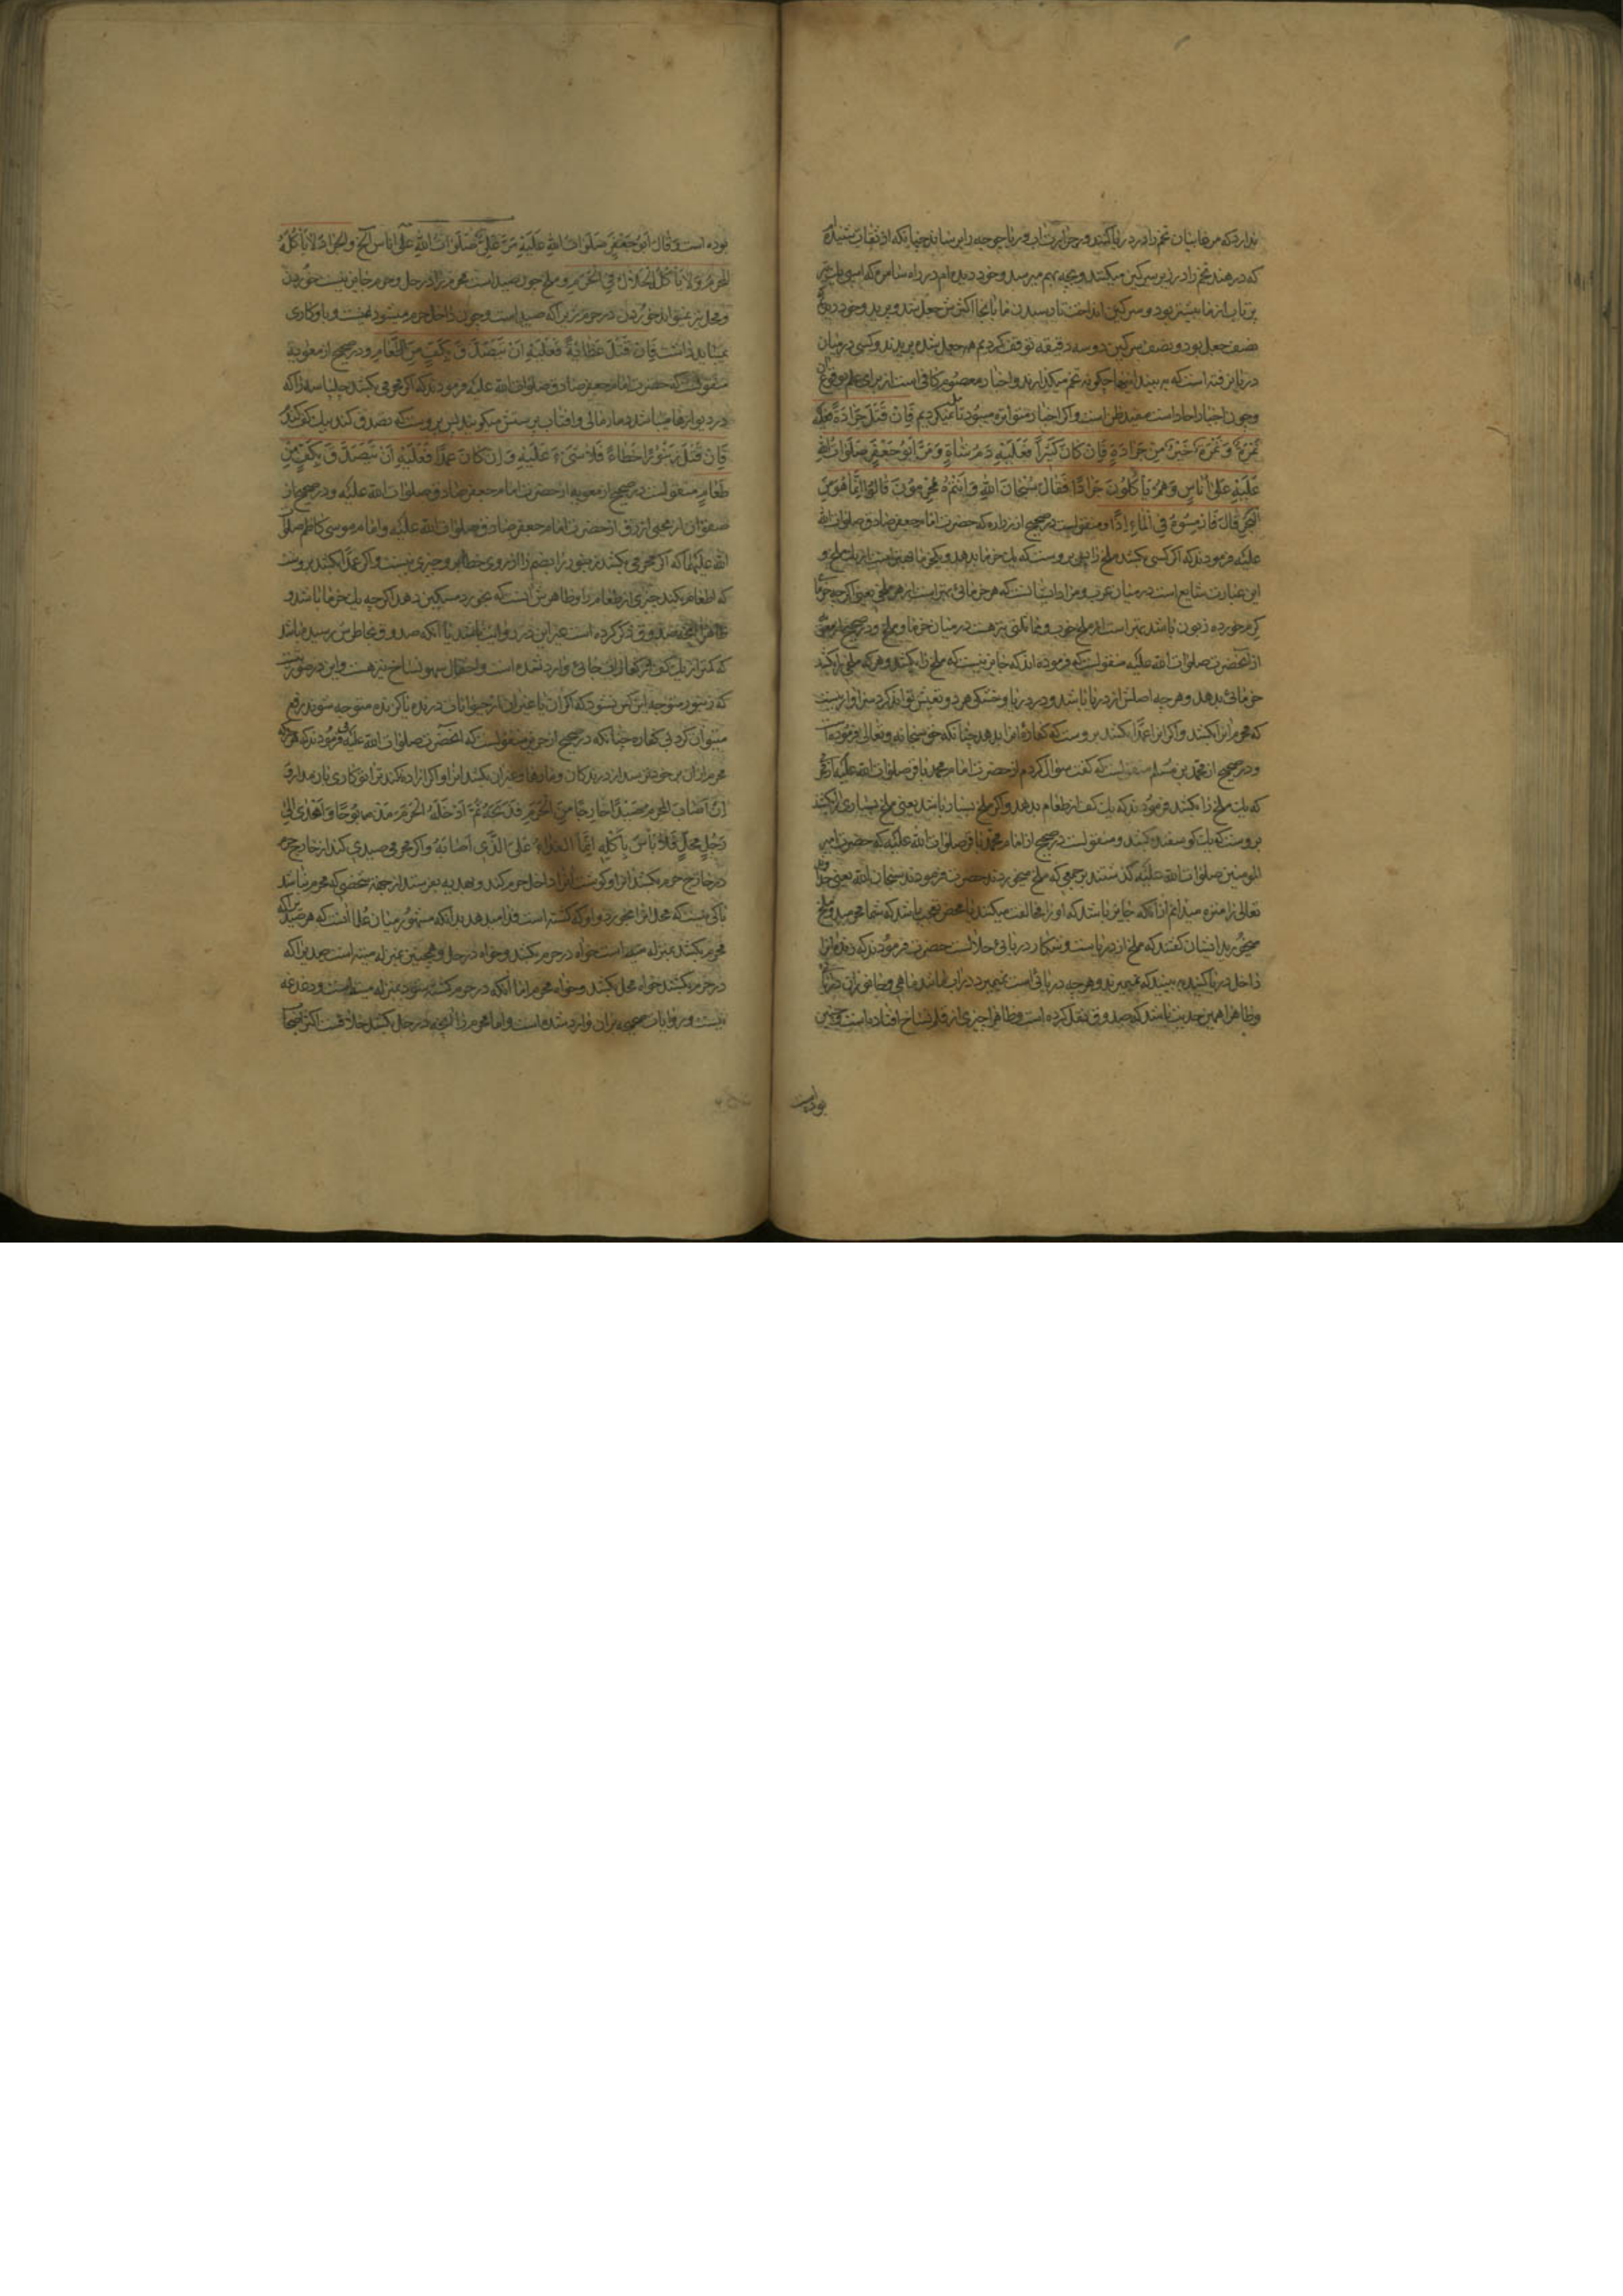 ندارد که مرغابیان تخم را در دریا کنند و حرارت آب دریا جوجه را برساند چنانکه از ثقات شنیدم
که در هند تخم را در زیر سرکین میکنند و بچه بهم میرسد و خود دیدم در راه شام که اسبی
پیشتر بود و سرکین انداخت تا رسیدن ما بآنجا اکثرش جعل شد و پرید و خود دیدم
نصف جعل بود و نصف سرکین دو سه دقیقه توقف کردیم همه جعل شده پریدند و کسی در میان
دریا نرفته است که ببیند اینها چکونه تخم میکذارند و اخبار معصوم کافی است از برای علم بوقوع
و چون اخبار احاد است مفید ظن است و اکر اخبار متواتره میبود تأمل نمیکردیم فَاِنْ قَتَلَ جَرَادَةً فَعَلَیْهِ
تَمْرَةٌ وَ تَمْرَةٌ خَیْرٌ مِنْ جَرَادَةٍ فَاِنْ کَانَ کَثیراً فَعَلَیْهِ دَمُ شَاةٍ وَ مَرَّ اَبُو جَعْفَرٍ صَلَوَاتُ اللهِ
عَلَیْهِ عَلی اُنَاسٍ وَ هُمْ یَأْکُلُونَ جَرَاداً فَقَالَ سُبْحَانَ اللهِ وَ اَنْتُمْ مُحْرِمُونَ قَالُوا اِنَّمَا هُوَ مِنَ
الْبَحْرِ قَالَ فَارْمِسُوهُ فِی الْمَاءِ اِذاً و منقولست در صحیح از زراره که حضرت امام جعفر صادق صلوات الله
علیه فرمودند که اکر کسی بکشد ملخ را پس بروست که یک خرما بدهد و یک خرما بهتر است از یک ملخ و
این عبارت شایع است در میان عرب و مراد آنست که هر خرمائی بهتر است از هر ملخی یعنی اکر چه خرما
کرم خورده زبون باشد بهتر است از ملخ خوب و نمانکی نیز هست در میان خرما و ملخ و در صحیح از معویه
از آنحضرت صلوات الله علیه منقولست که فرموده اند که جایز نیست که ملخ را بکشند و هر که ملخی را بکشد
خرمائی بدهد و هر چه اصلش از دریا باشد و در دریا و خشکی هر دو تعیش تواند کرد سزاوار نیست
که محرم آنرا بکشد و اکر آنرا عمدا بکشد بروست که کفاره آنرا بدهد چنانکه حق سبحانه و تعالی فرموده است
و در صحیح از محمد بن مسلم منقولست که کفت سؤال کردم از حضرت امام محمد باقر صلوات الله علیه از محرمی
که یک ملخ را بکشد فرمودند که یک کف از طعام بدهد و اکر ملخ بسیار باشد یعنی ملخ بسیاری را بکشد
بروست که یک کوسفند بکشد و منقولست در صحیح از امام محمد باقر صلوات الله علیه که حضرت امیر
المومنین صلوات الله علیه کذشتند بر جمعی که ملخ میخوردند حضرت فرمودند سبحان الله یعنی خداوند
تعالی را منزه میدانم از آنکه جایز باشد که او را مخالفت میکنند یا محض تعجب باشد که شما محرمید و ملخ
میخورید ایشان کفتند که ملخ از دریاست و شکار دریائی حلالست حضرت فرمودند که پس آنرا
داخل دریا کنید به بینید که نمیمیرند و هر چه دریائی است نمیمیرد در آب مانند ماهی و جانوران دریائی
و ظاهرا همین حدیث باشد که صدوق نقل کرده است و ظاهرا چیزی از قلم نساخ افتاده است و چنین
بوده است
بوده است وَ قَالَ اَبُو جَعْفَرٍ صَلَوَاتُ اللهِ عَلَیْهِ مَرَّ عَلِیٌّ صَلَوَاتُ اللهِ عَلَی اُنَاسٍ الخ وَ الْجَرَادُ لَا یَأْکُلُهُ
الْمُحْرِمُ وَ لَا یَأْکُلُهُ الْحَلَالُ فِی الْحَرَمِ و ملخ چون صید است محرم را در حل و حرم جایز نیست خوردن
و محل نیز نمیتواند خوردن در حرم زیرا که صید است و چون داخل حرم میشود ایمنست و با او کاری
نمیباید داشت فَاِنْ قَتَلَ عَظَایَةً فَعَلَیْهِ اَنْ یَتَصَدَّقَ بِکَفٍّ مِنَ الطَّعَامِ و در صحیح از معویه
منقولست که حضرت امام جعفر صادق صلوات الله علیه فرمودند که اکر محرمی بکشد چلپاسه را که
در دیوارها میباشد و مارمالی و آفتاب پرستش میکویند پس بروست که تصدق کند بیک کف کندم
فَاِنْ قَتَلَ زُنْبُوراً خَطَاءً فَلَا شَیْءَ عَلَیْهِ وَ اِنْ کَانَ عَمْداً فَعَلَیْهِ اَنْ یَتَصَدَّقَ بِکَفٍّ مِنْ
طَعَامٍ منقولست در صحیح از معویه از حضرت امام جعفر صادق صلوات الله علیه و در صحیح از
صفوان از یحیی ازرق از حضرت امام جعفر صادق صلوات الله علیه و امام موسی کاظم صلوات
الله علیهما که اکر محرمی بکشد زنبور را بضم زا از روی خطا برو چیزی نیست و اکر عمدا بکشد بروست
که اطعام بکند چیزی از طعام را و ظاهرش آنست که بخورد مسکین دهد اکر چه یک خرما باشد و
ظاهرا آنچه صدوق ذکر کرده است غیر این در روایت باشد یا آنکه صدوق بخاطرش رسیده باشد
که کمتر از یک کف در کفارات جائی وارد نشده است و احتمال سهو نساخ نیز هست و این در صورتیست
که زنبور متوجه این کس نشود که اکر آن یا غیر آن از حیوانات درنده یا کزنده متوجه شوند رفع
میتوان کرد بی کفاره چنانکه در صحیح از حریز منقولست که آنحضرت صلوات الله علیه فرمودند که هر چه
محرم از آن بر خود ترسد از درندکان و مارها و غیر آن بکشد آنرا و اکر اراده نکند ترا تو کاری باو مدار وَ
اِنْ اَصَابَ الْمُحْرِمُ صَیْداً خَارِجاً مِنَ الْحَرَمِ فَذَبَحَهُ ثُمَّ اَدْخَلَهُ الْحَرَمَ مَذْبُوحاً وَ اَهْدَی اِلَی
رَجُلٍ مُحِلٍّ فَلَا بَأْسَ بِاَکْلِهِ اِنَّمَا الْفِدَاءُ عَلَی الَّذِی اَصَابَهُ و اکر محرمی صیدی کند از خارج حرم
در خارج حرم بکشد آنرا و کوشت آنرا داخل حرم کند و بهدیه بفرستد از جهة شخصی که محرم نباشد
باکی نیست که محل آنرا بخورد و او که کشته است فدا میدهد بدانکه مشهور میان علما آنست که هر صیدی را که
محرم بکشد بمنزله میته است خواه در حرم بکشد و خواه در حل و همچنین بمنزله میته است صیدی را که
در حرم بکشند خواه محل بکشد و خواه محرم اما آنکه در حرم کشته شود بمنزله میته است و دغدغه
نیست و روایات صحیحه بر آن وارد شده است و اما محرم را آنچه در حل بکشد خلافست اکثر اصحاب